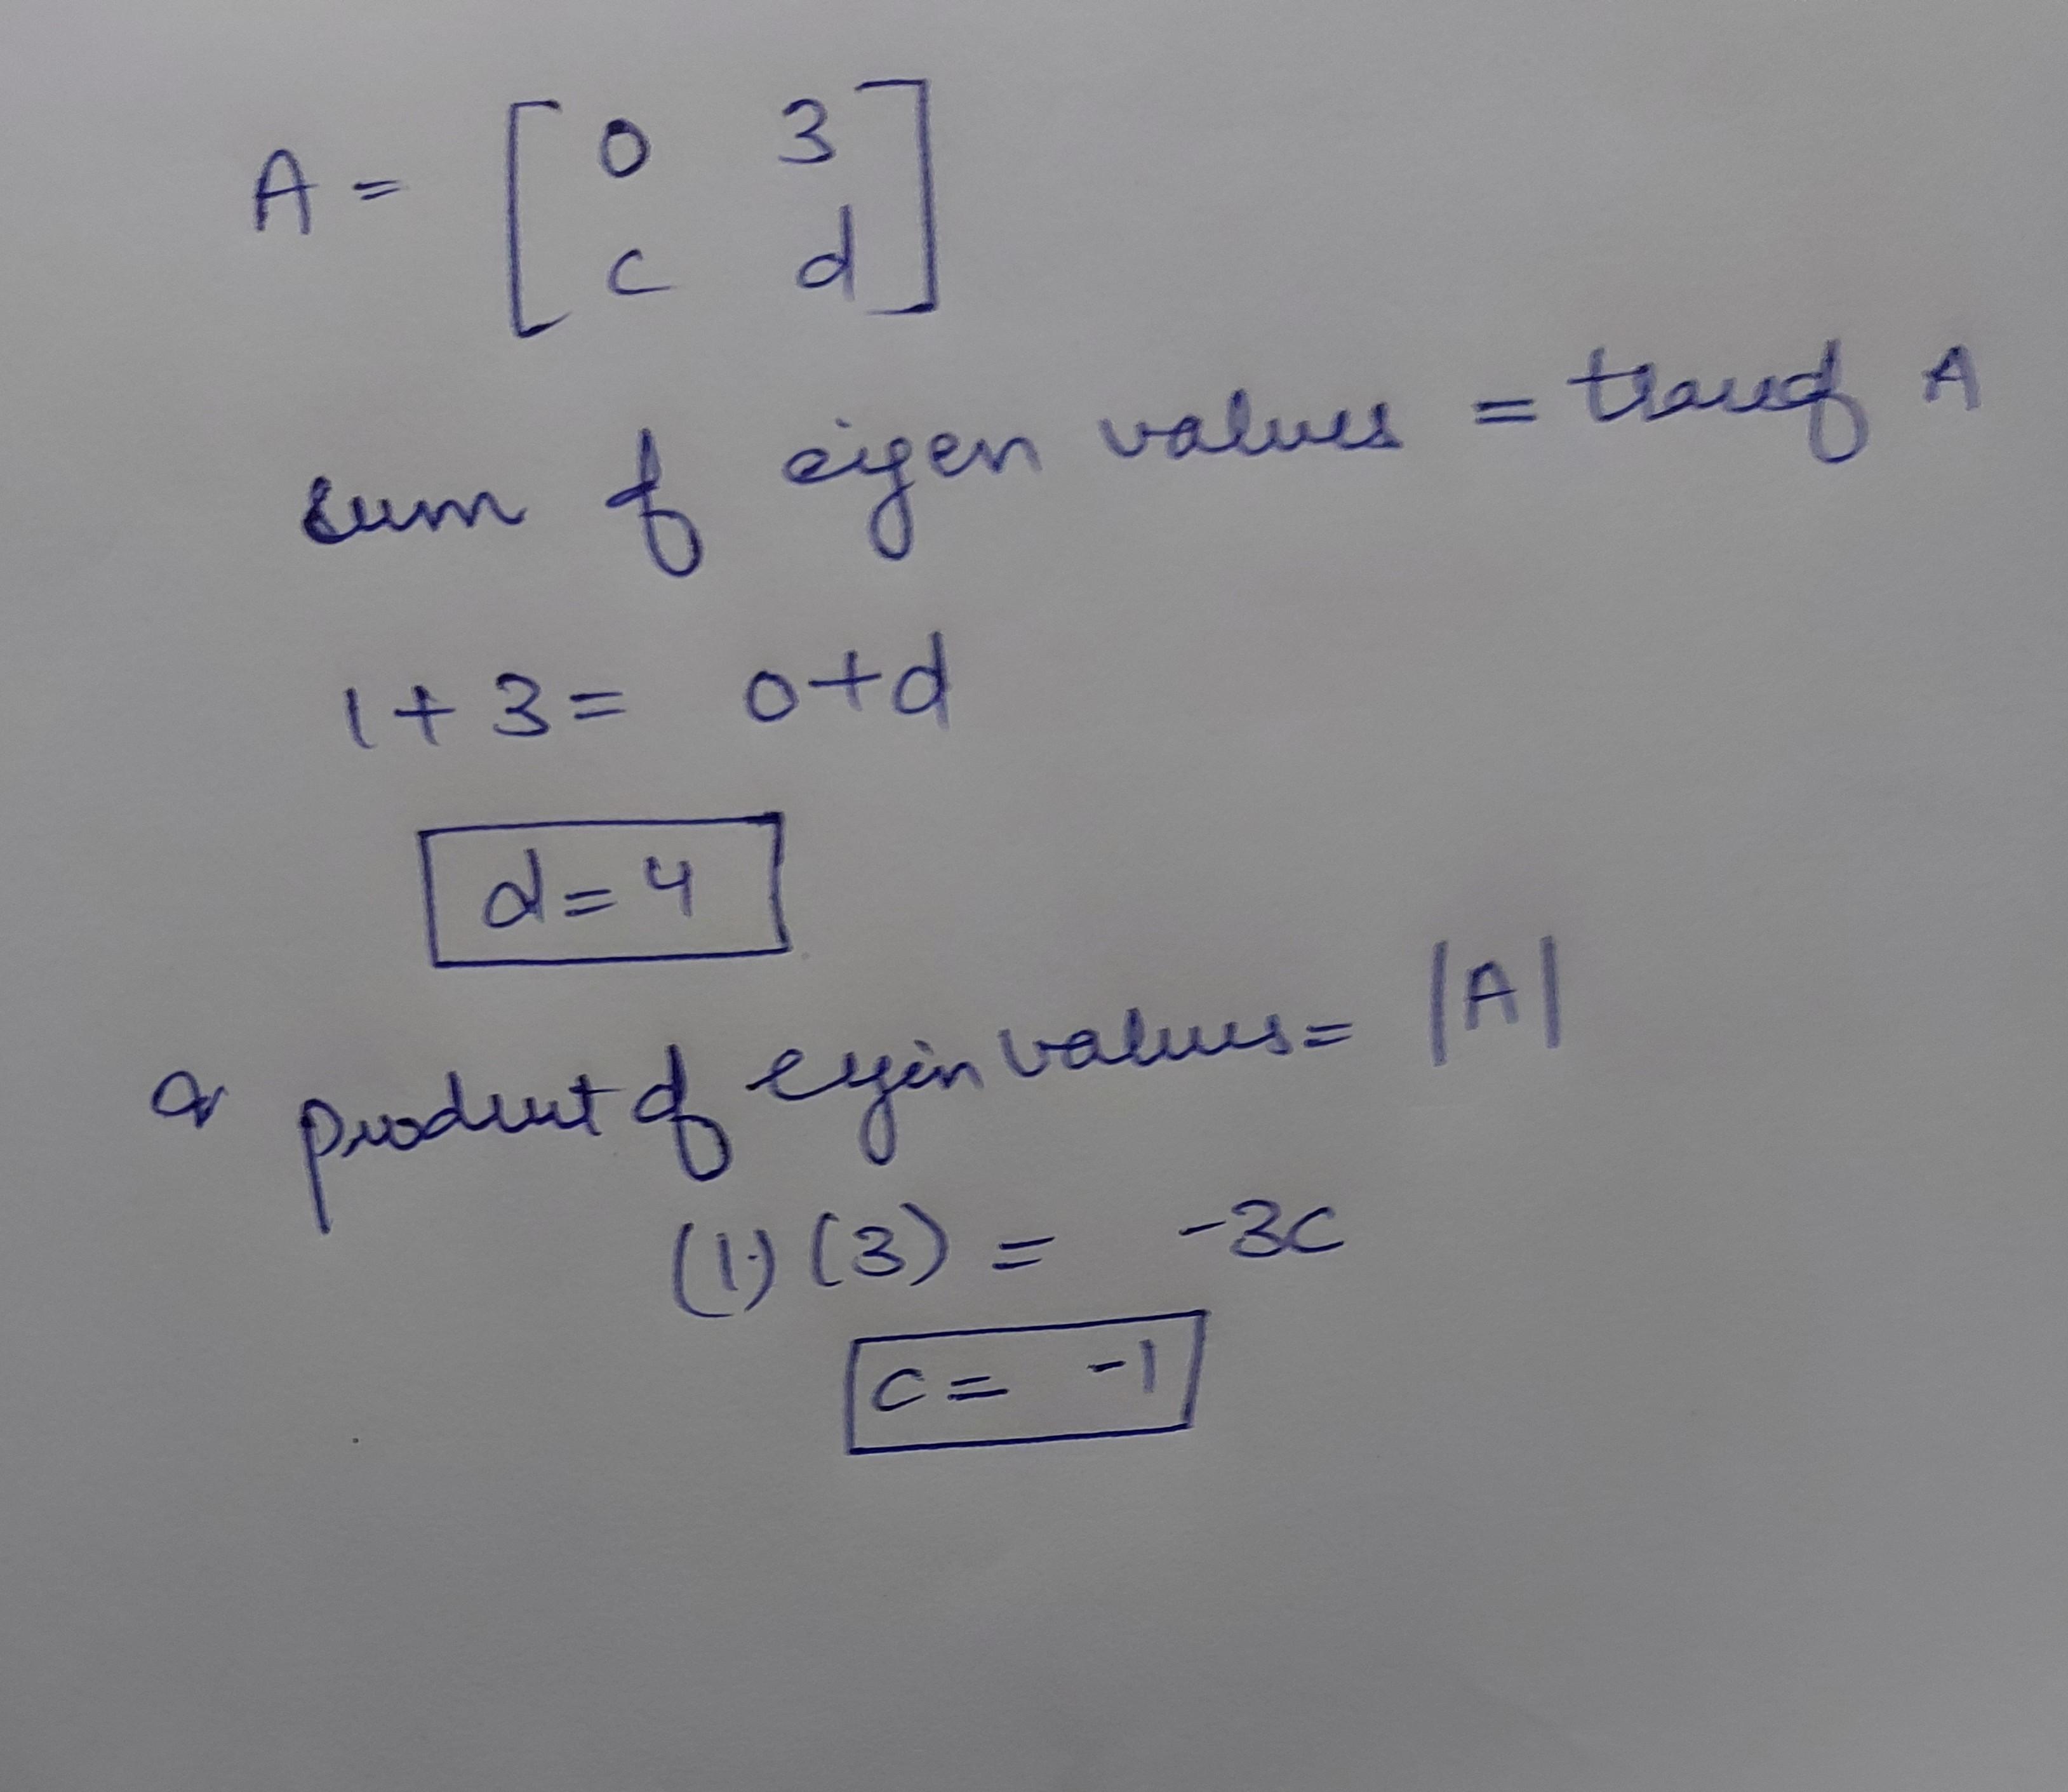 A = [ 0 3
c d ]
sum of eigen values = trace of A
1 + 3 = 0 + d
d = 4
& product of eigen values = |A|
(1) (3) = -3c
c = -1